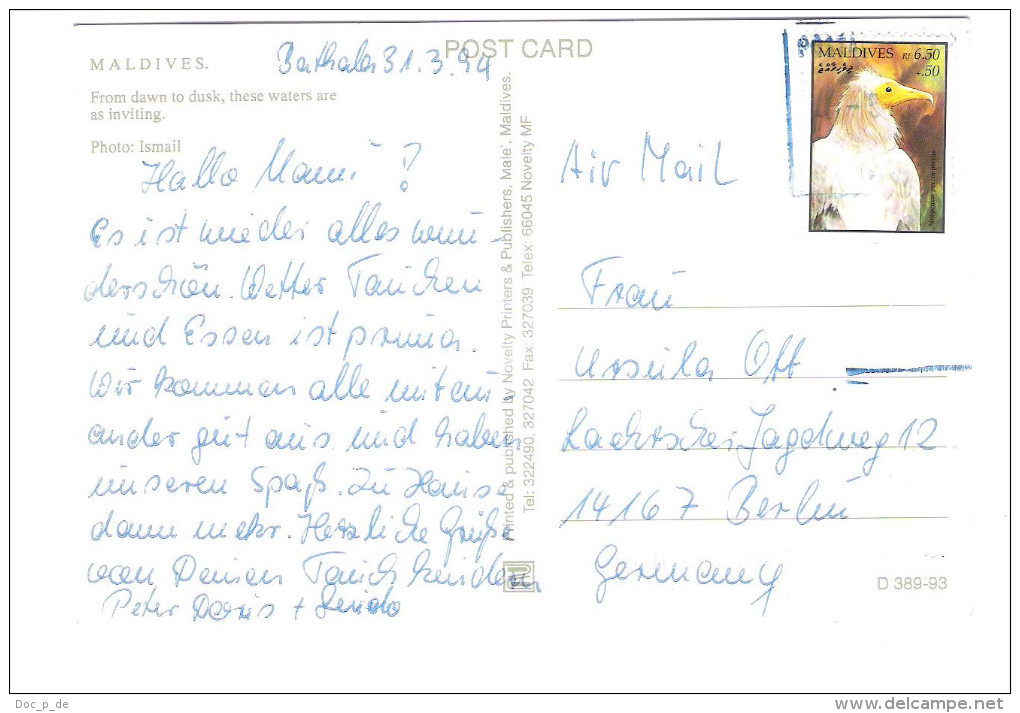 POST CARD
MALDIVES.
From dawn to dusk, these waters are
as inviting.
Photo: Ismail
31.3.94
Hallo !
Es ist wieder alles wun-
derschön. Wetter Tauchen
und Essen ist prima.
Wir kommen alle mitein
ander gut aus und haben
unseren Spaß. Zu Hause
dann mehr. Herzliche Grüße
von Deinen Tauchkindern
Peter Doris +
Printed & published by Novelty Printers & Publishers, Male', Maldives.
Tel: 322490, 327042 Fax: 327039 Telex: 66045 Novelty MF
MALDIVES Rf 6.50
+.50
Air Mail
Frau
Ursula Ott
Jagdweg 12
14167 Berlin
Germany
D 389-93
Doc_p_de
www.delcampe.net